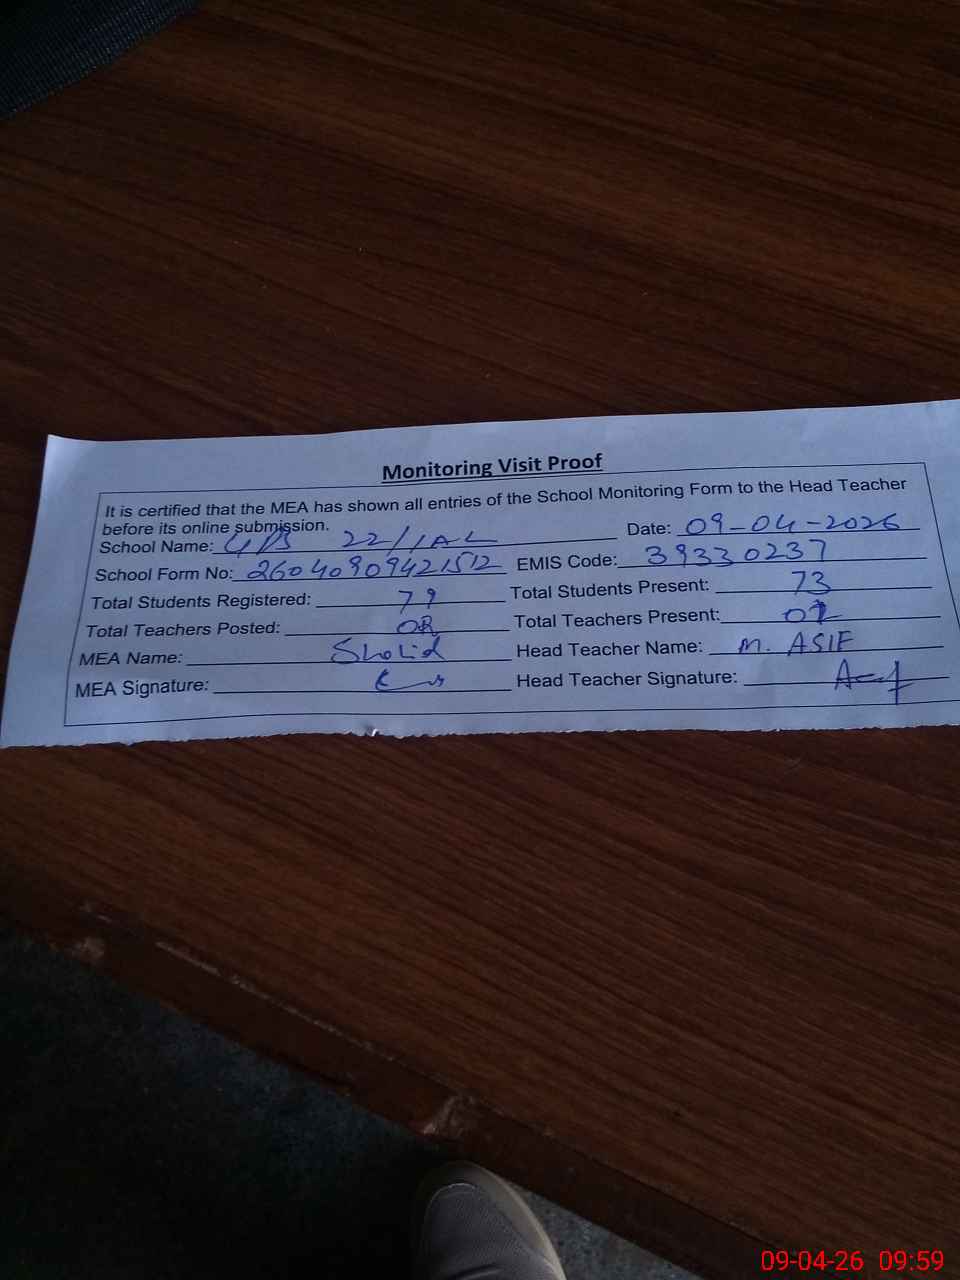 Monitoring Visit Proof
It is certified that the MEA has shown all entries of the School Monitoring Form to the Head Teacher
before its online submission.
School Name: 22/1AL Date: 09-04-2026
School Form No: 26040909421512 EMIS Code: 39330237
Total Students Registered: 79 Total Students Present: 73
Total Teachers Posted: Total Teachers Present:
MEA Name: Shahid Head Teacher Name: M. ASIF
MEA Signature: Head Teacher Signature: Asif
09-04-26 09:59